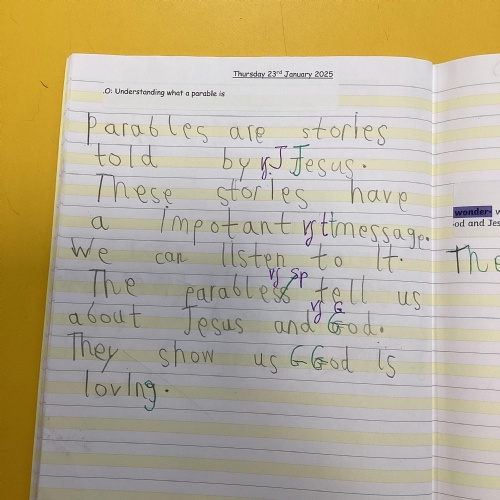 Thursday 23rd January 2025
.O: Understanding what a parable is
Parables are stories
told by vf J Jesus.
These stories have
a impotant vf ttmessage.
We can listen to it.
vf Sp
The parabless tell us
vf G
about Jesus and God.
They show us G God is
loving.
wonder- w
od and Jes
The